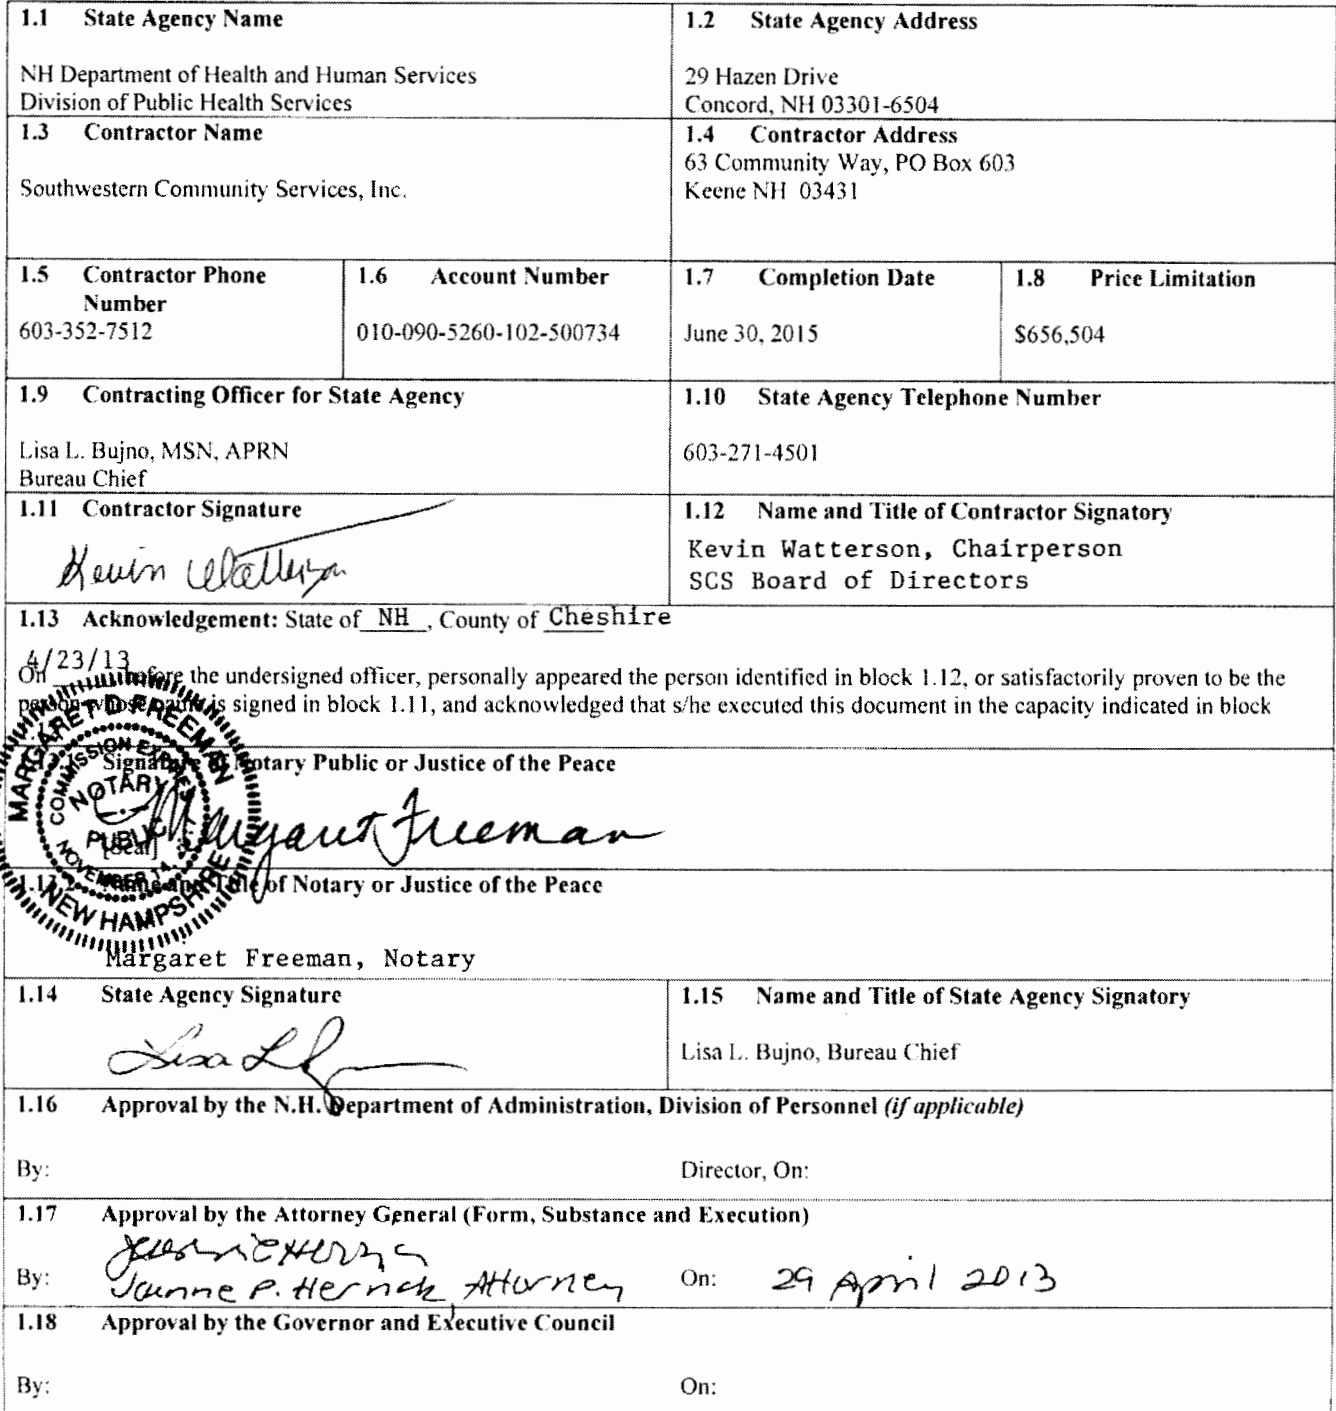 1.1 State Agency Name
NH Department of Health and Human Services
Division of Public Health Services
1.2 State Agency Address
29 Hazen Drive
Concord, NH 03301-6504
1.3 Contractor Name
Southwestern Community Services, Inc.
1.4 Contractor Address
63 Community Way, PO Box 603
Keene NH 03431
1.5 Contractor Phone
Number
603-352-7512
1.6 Account Number
010-090-5260-102-500734
1.7 Completion Date
June 30, 2015
1.8 Price Limitation
$656,504
1.9 Contracting Officer for State Agency
Lisa L. Bujno, MSN, APRN
Bureau Chief
1.10 State Agency Telephone Number
603-271-4501
1.11 Contractor Signature
Kevin Watterson
1.12 Name and Title of Contractor Signatory
Kevin Watterson, Chairperson
SCS Board of Directors
1.13 Acknowledgement: State of NH, County of Cheshire
4/23/13
On before the undersigned officer, personally appeared the person identified in block 1.12, or satisfactorily proven to be the
person whose name is signed in block 1.11, and acknowledged that s/he executed this document in the capacity indicated in block
Signature of Notary Public or Justice of the Peace
MARGARET D FREEMAN
COMMISSION EXPIRES
NOTARY
PUBLIC
NOVEMBER 14,
NEW HAMPSHIRE
Margaret Freeman
[Seal]
Name and Title of Notary or Justice of the Peace
Margaret Freeman, Notary
1.14 State Agency Signature
Lisa L
1.15 Name and Title of State Agency Signatory
Lisa L. Bujno, Bureau Chief
1.16 Approval by the N.H. Department of Administration, Division of Personnel (if applicable)
By:
Director, On:
1.17 Approval by the Attorney General (Form, Substance and Execution)
By: Jeanne P. Herrick, Attorney
On: 29 April 2013
1.18 Approval by the Governor and Executive Council
By:
On: